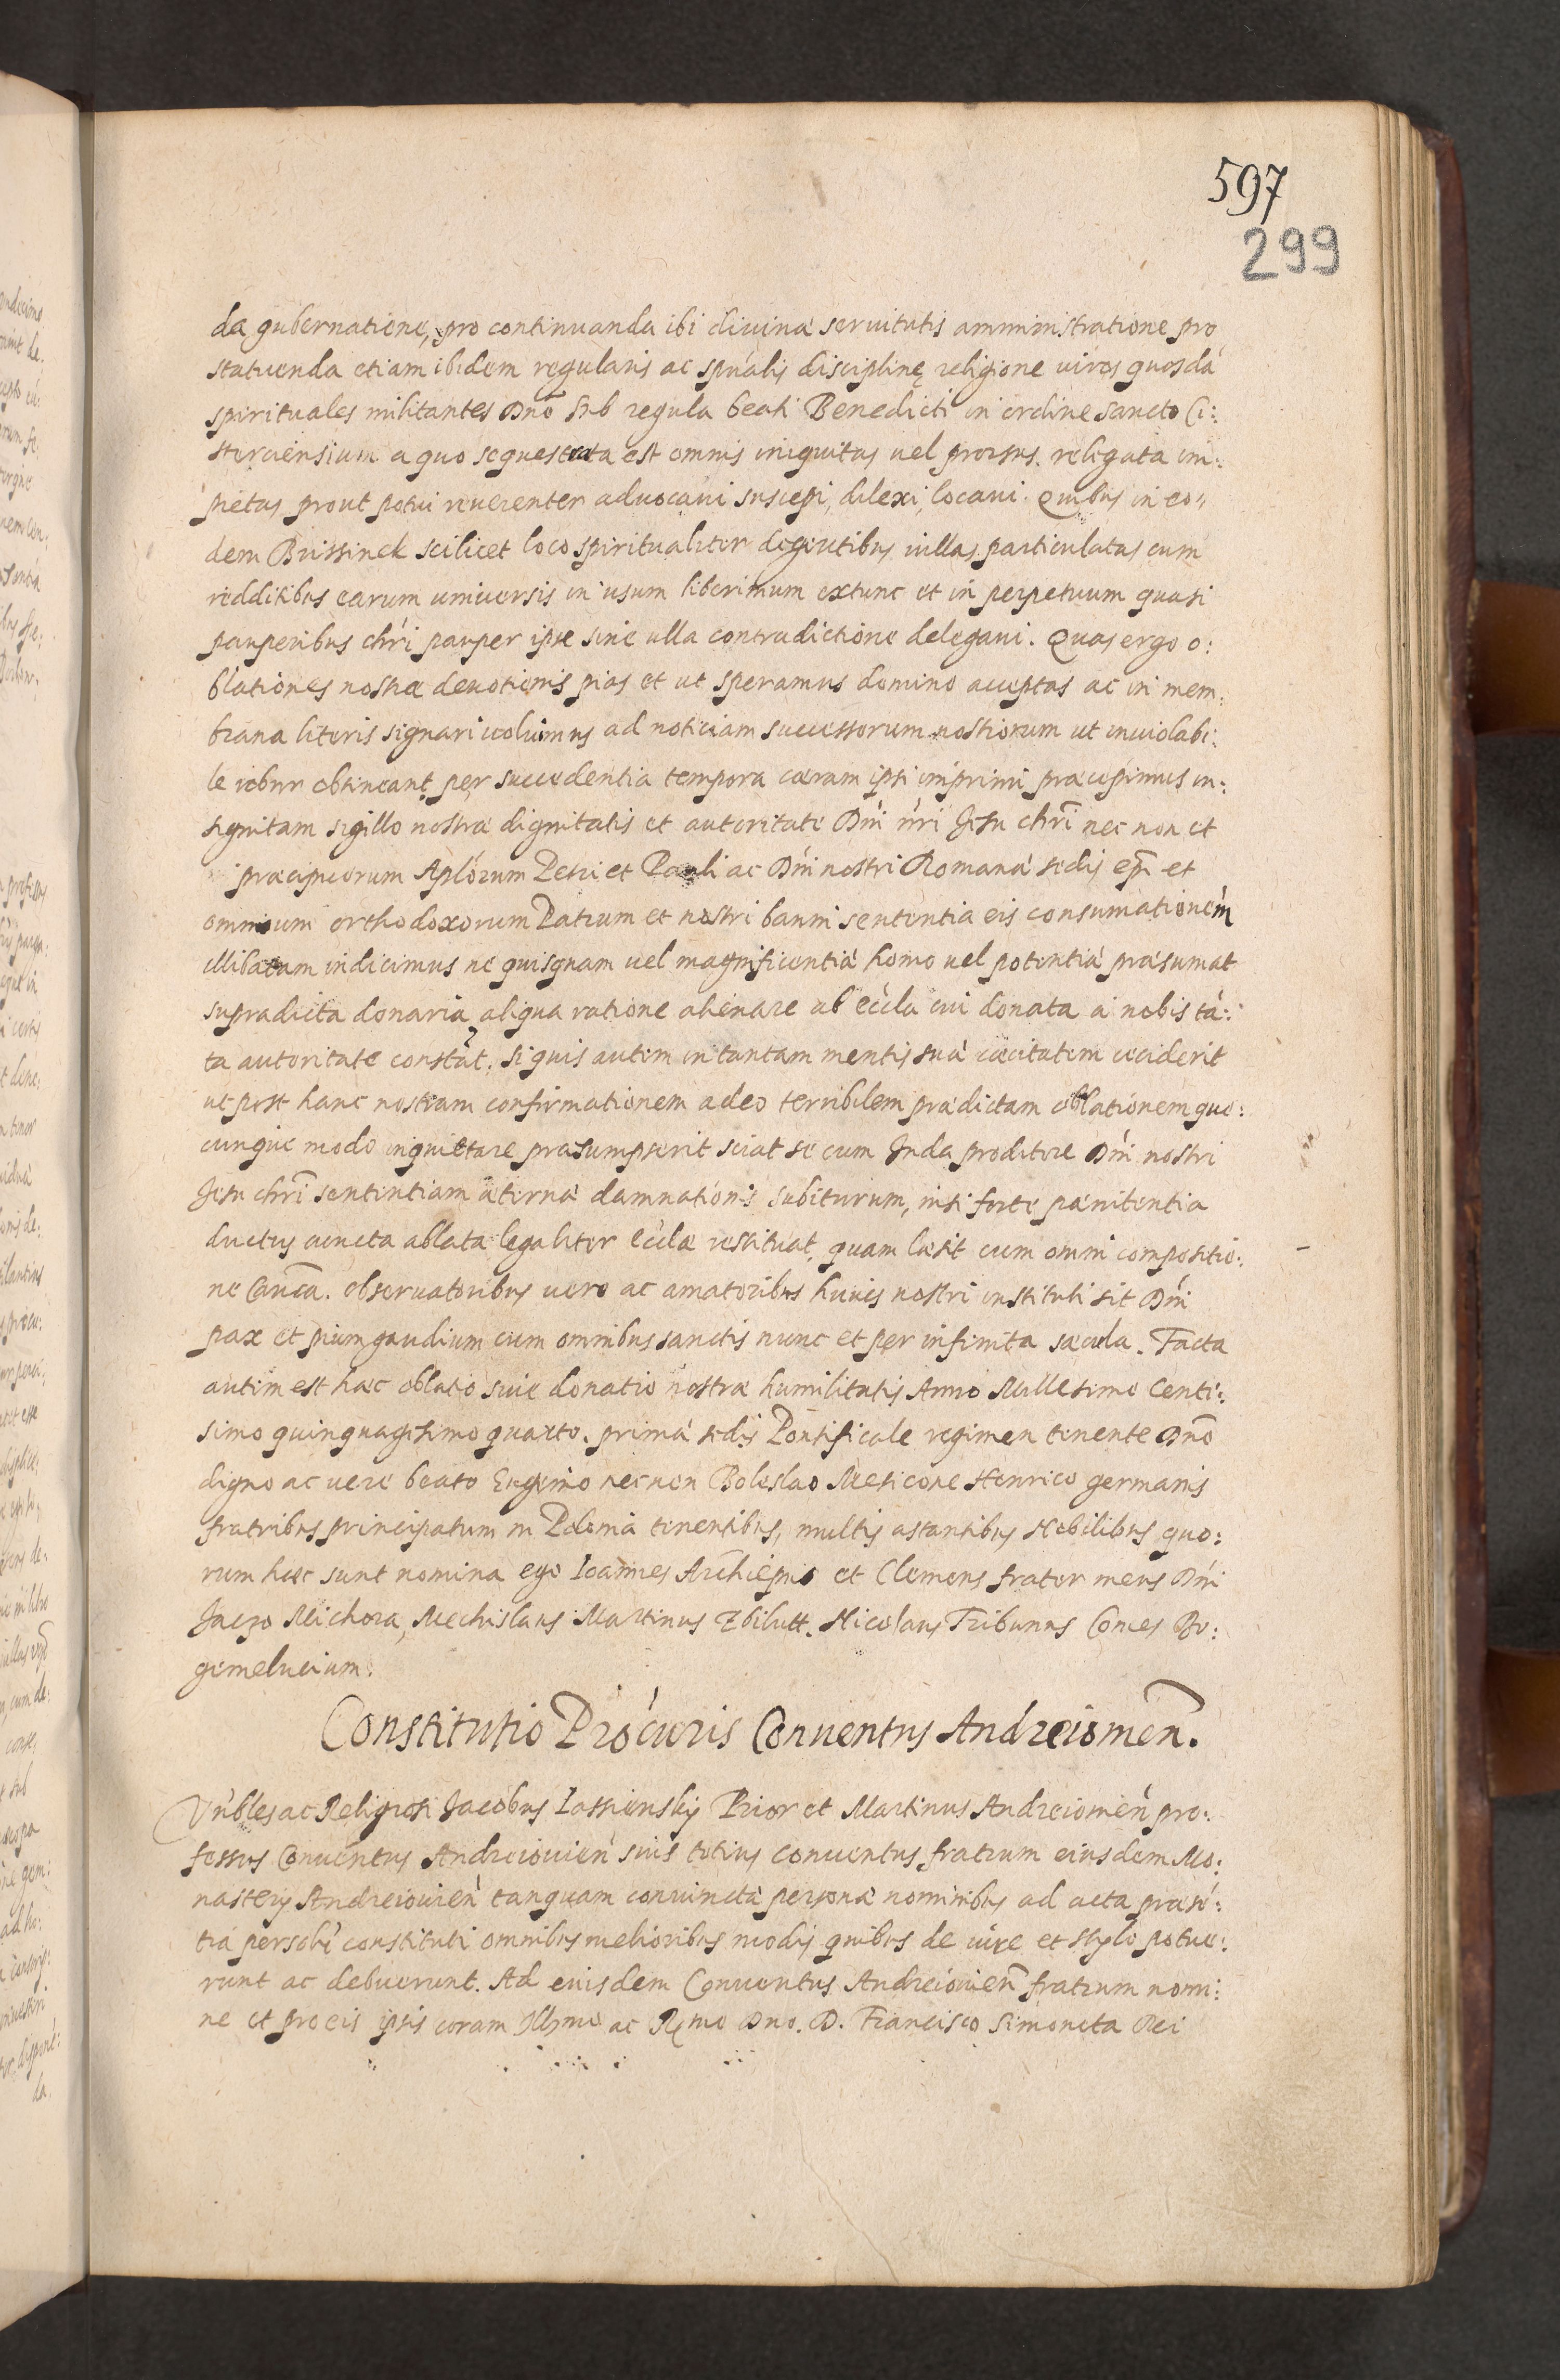 597
299
da gubernatione, pro continuanda ibi diuina seruitutis amministratione pro
statuenda etiam ibidem regularis ac spũalis disciplinę religione uiros quosdã
spirituales militantes Dnõ sub regula beati Benedicti in ordine sancto Ci:
sterciensium a quo sequestrata est omnis iniquitas uel prorsus religata im:
pietas prout potui reuerenter aduocaui suscepi, dilexi, locaui. Quibus in eo:
dem Brissinek scilicet loco spiritualiter degentibus uillas particulatas cum
redditibus earum uniuersis in usum liberimum extunc et in perpetuum quasi
pauperibus chri pauper ipse sine ulla contradictione delegaui. Quas ergo o:
blationes nostræ deuotionis pias et ut speramus domino acceptas ac in mem:
brana literis signari uoluimus ad noticiam successorum nostrorum ut inuiolabi:
le robur obtineant per succedentia tempora cæram ipsi imprimi præcepimus in:
signitam sigillo nostræ dignitatis et autoritate Dni nri Jesu chri nec non et
præcipuorum Aplorum Petri et Pauli ac Dni nostri Romanæ sedis epi et
omnium orthodoxorum Patrum et nostri banni sententia eis consumationem
illibatam indicimus ne quisquam uel magnificentiæ homo uel potentiæ præsumat
supradicta donaria aliqua ratione alienare ab eccla cui donata a nobis tã:
ta autoritate constat. Si quis autem in tantam mentis suæ cæcitatem ceciderit
ut post hanc nostram confirmationem adeo terribilem prædictam oblationem quo:
cunque modo inquietare præsumpserit sciat se cum Juda proditore Dni nostri
Jesu chri sententiam æternæ damnationis subiturum, nisi forte pænitentia
ductus cuncta ablata legaliter ecclæ restituat, quam læsit cum omni compositio:
ne Canca. Obseruatoribus uero ac amatoribus huius nostri instituti sit Dni
pax et pium gaudium cum omnibus sanctis nunc et per infinita sæcula. Facta
autem est hæc oblatio siue donatio nostræ humilitatis Anno Millesimo Cente:
simo quinquagesimo quarto. primæ sedis Pontificale regimen tenente Dno
digno ac uere beato Eugenio necnon Boleslao Mesicone Henrico germanis
fratribus principatum in Polonia tenentibus, multis astantibus Nobilibus quo:
rum hæc sunt nomina ego Ioannes Archiepus et Clemens frater meus Dni
Jaczo Michora, Mechislaus Martinus Zbilutt. Nicolaus Tribunus Comes Bo:
gemelucium.
Constitutio Procuris Conuentus Andreiouien.
Vnbles ac Religiosi Jacobus Iassienskij Prior et Martinus Andreiouien pro:
fessus Conuentus Andreiouien suis totius conuentus fratrum eiusdem Mo:
nasterij Andreiouien tanquam conuincta persona nominibus ad acta præsen:
tia personr constituti omnibus melioribus modis quibus de iure et stylo potue:
runt ac debuerunt. Ad euisdem Conuentus Andreiouien fratrum nomi:
ne et pro eis ipsis coram Illmo ac Rmo Dno. D. Francisco Simoneta Rei